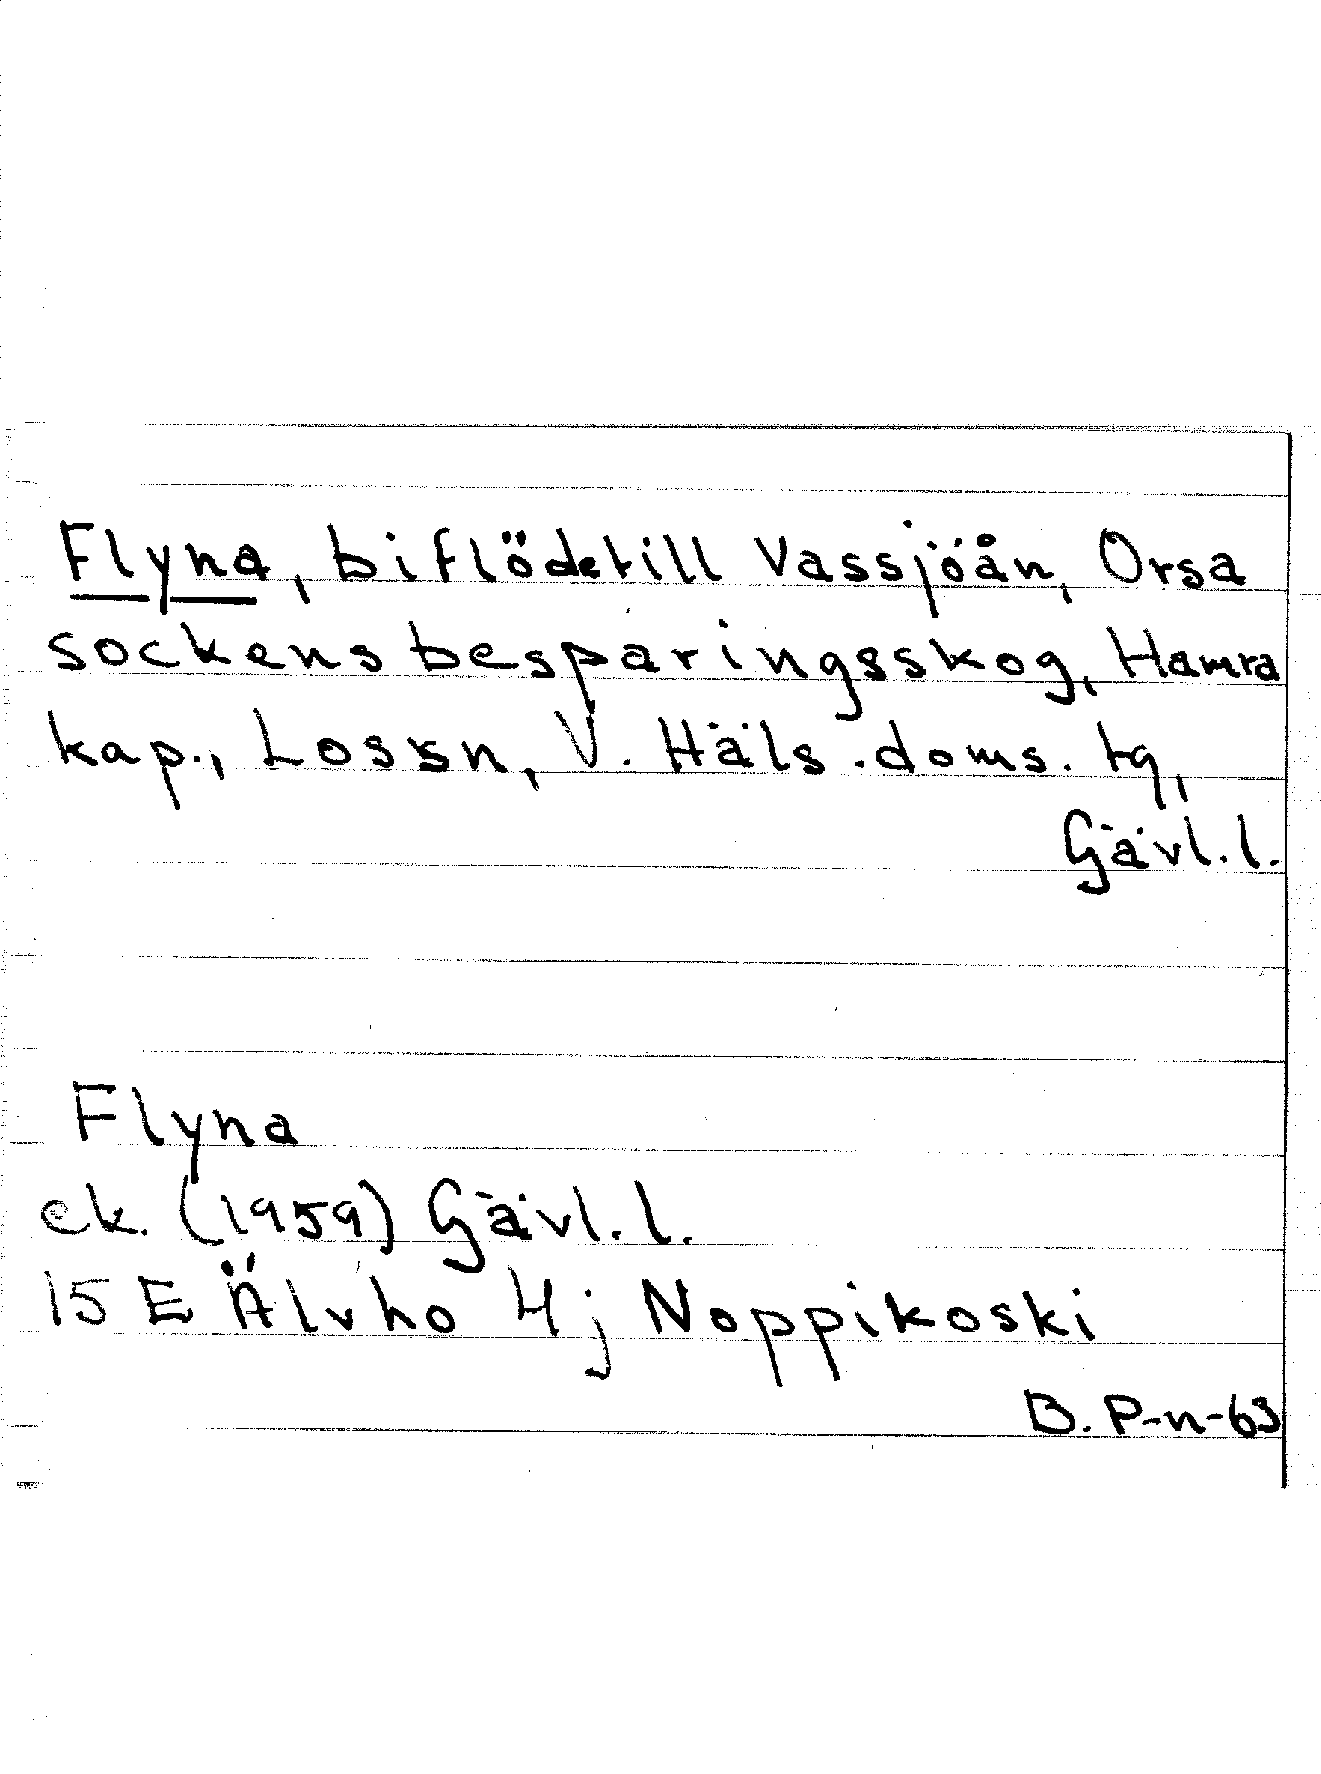 Flyna, biflöde till Vassjöån, Orsa
sockens besparingsskog, Hamra
kap., Lossn, V. Häls. doms. tg,
Gävl. l.
Flyna
ek. (1959) Gävl. l.
15 E Älvho 4j Noppikoski
B. P-n-63